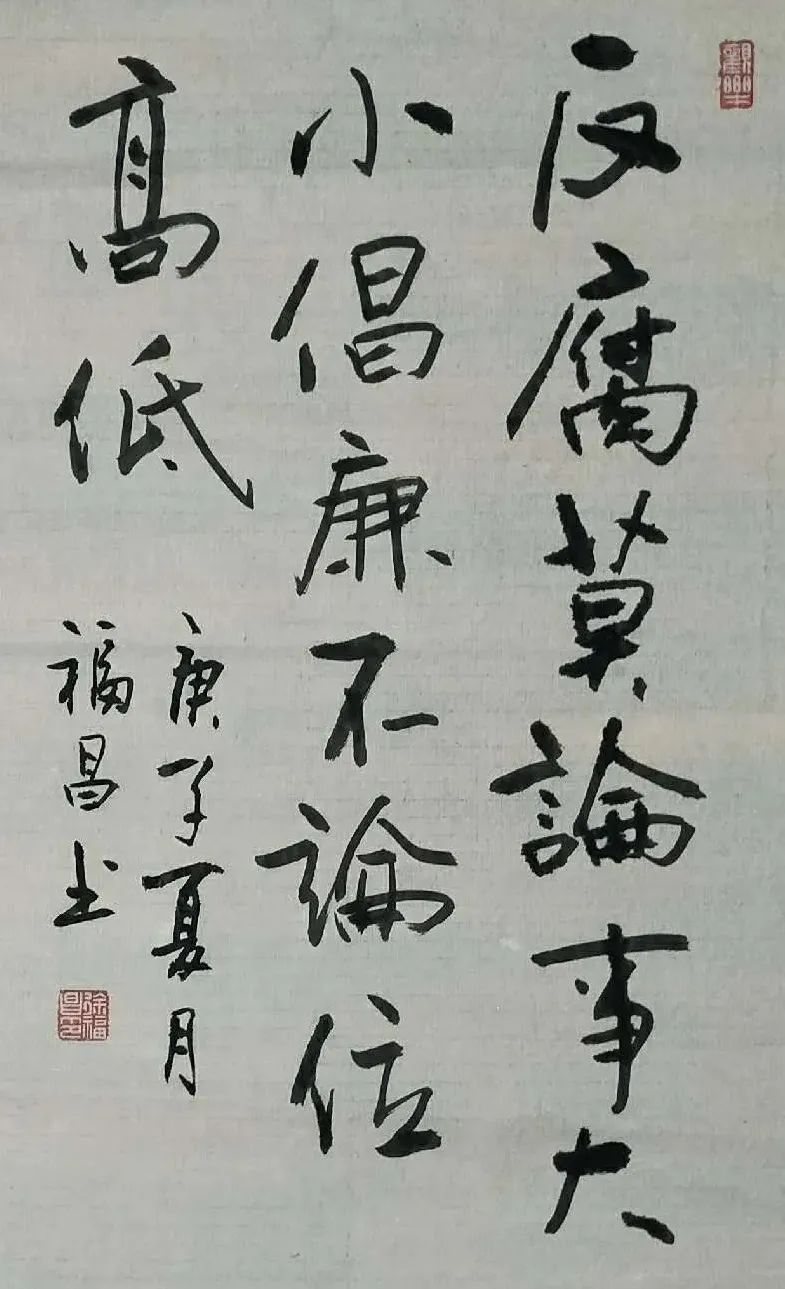 反腐莫論事大
小倡廉不論位
高低
庚子夏月
福昌书